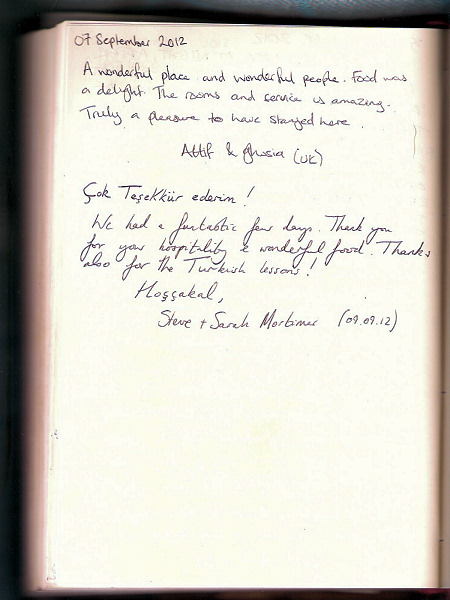 07 September 2012
A wonderful place and wonderful people. Food was
a delight. The rooms and service is amazing.
Truly a pleasure to have stayed here.
Attif & Ghosia (UK)
Çok Teşekkür ederim!
We had a fantastic few days. Thank you
for your hospitality & wonderful food. Thanks
also for the Turkish lessons!
Hoşşakal,
Steve + Sarah Mortimer (09.09.12)